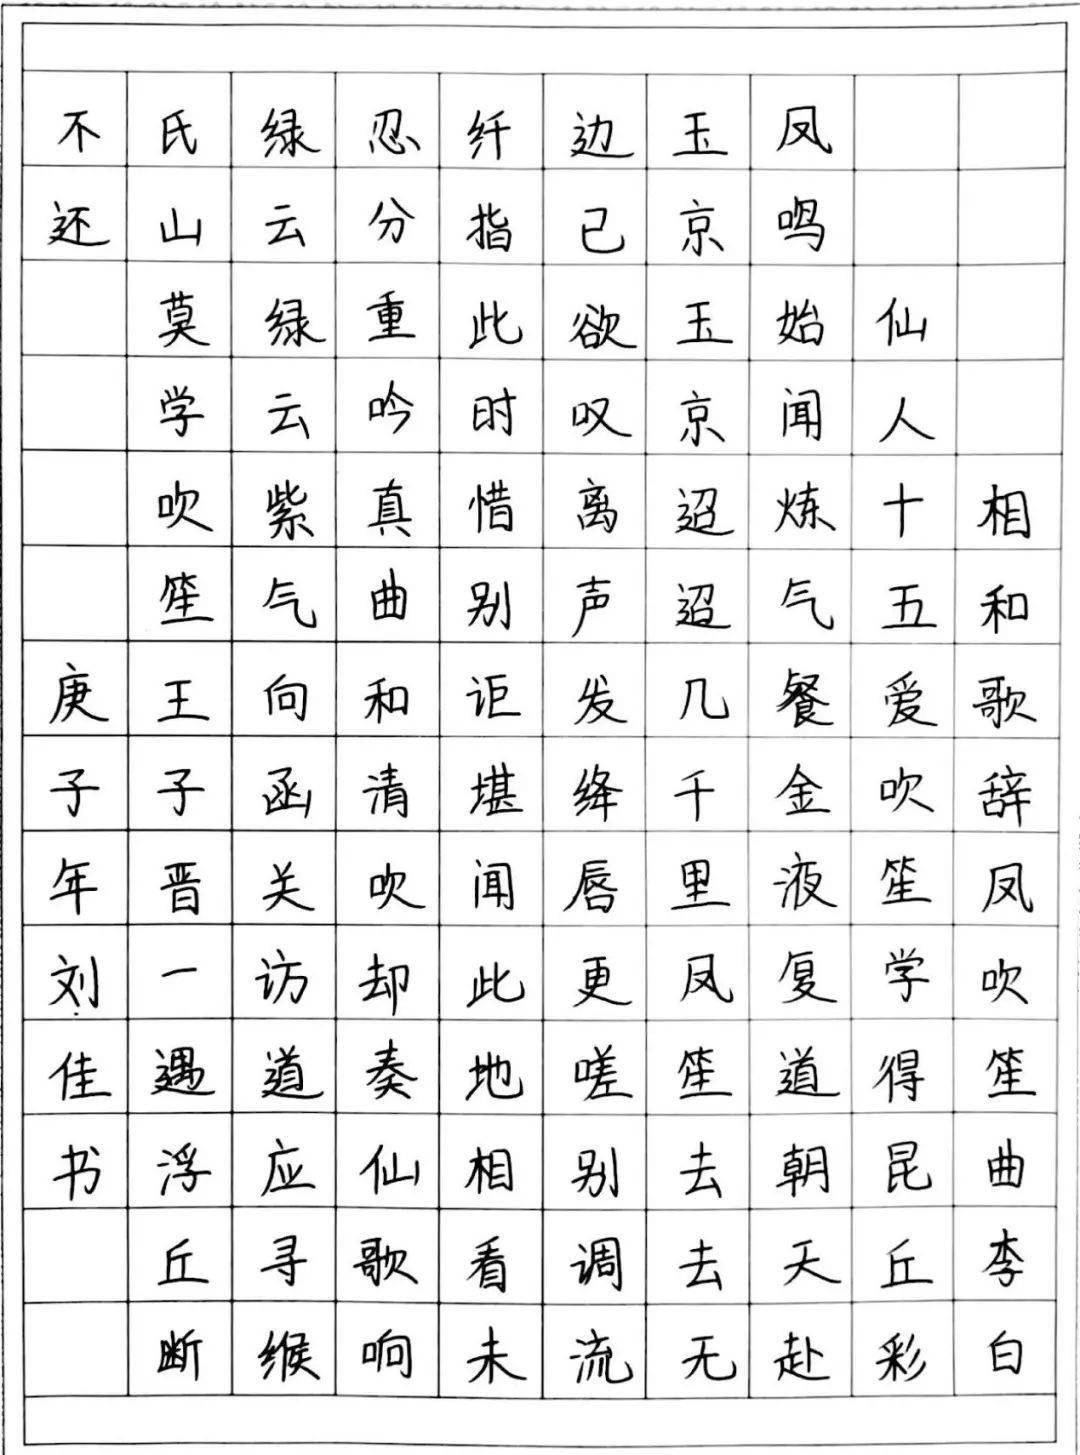 相和歌辞凤吹笙曲李白
仙人十五爱吹笙学得昆丘彩
凤鸣始闻炼气餐金液复道朝天赴
玉京玉京迢迢几千里凤笙去去无
边已欲叹离声发绛唇更嗟别调流
纤指此时惜别讵堪闻此地相看未
忍分重吟真曲和清吹却奏仙歌响
绿云绿云紫气向函关访道应寻缑
氏山莫学吹笙王子晋一遇浮丘断
不还
庚子年刘佳书